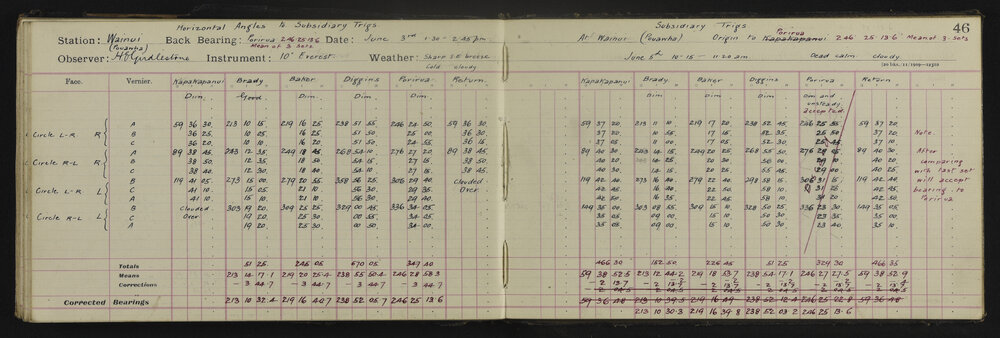 Horizontal Angles to Subsidiary Trigs
Station: Wainui (Pouawha) Back Bearing: Porirua 246 25 13·6 Mean of 3 Sets Date: June 3rd 1·30 – 2·45 pm
Observer: H E Girdlestone Instrument: 10" Everest Weather: Sharp S.E. breeze Cold cloudy
Face. Vernier. Kapakapanui Brady Baker Diggins Porirua Return.
Dim. Good. Dim. Dim. Dim. Dim.
Circle L-R R A 59 36 30 213 10 15 219 16 25 238 51 55 246 24 50 59 36 30
B 36 25 10 25 16 25 51 50 25 00 36 30
C 36 20 10 15 16 20 51 50 24 55 36 15
Circle R-L R A 89 38 45 243 12 35 249 18 45 268 54 10 276 27 20 89 38 45
B 38 50 12 35 18 50 54 15 27 15 38 50
C 38 40 12 30 18 40 54 10 27 15 38 45
Circle L-R L B 119 41 05 273 15 00 279 20 55 358 56 25 306 29 40 Clouded
C 41 10 15 05 21 10 56 30 29 35 Over
A 41 10 15 05 21 10 56 30 29 40
Circle R-L L B Clouded 303 19 20 309 25 25 329 00 45 336 34 25
C Over 19 20 25 30 00 55 34 25
A 19 20 25 30 00 50 34 00
Totals 51 25 245 05 670 05 349 40
Means 213 14 17·1 219 20 25·4 238 55 50·4 246 28 58·3
Corrections – 3 44·7 – 3 44·7 – 3 44·7 – 3 44·7
Corrected Bearings 213 10 32·4 219 16 40·7 238 52 05·7 246 25 13·6
Subsidiary Trigs
46
At Wainui (Pouawha) Origin to Kapakapanui Porirua 246 25 13·6 Mean of 3 Sets
June 5th 10·15 – 11·20 am Dead calm cloudy.
Kapakapanui Brady Baker Diggins Porirua Return
Dim Dim Dim Dim Dim and unsteady accepted.
59 37 20 213 11 10 219 17 20 238 52 45 246 25 55 59 37 20
37 20 10 55 17 15 52 35 25 50 37 20
37 05 11 00 17 05 52 30 25 45 37 10
89 40 30 243 14 15 249 20 25 268 55 50 276 28 05 89 40 30
40 20 14 25 20 30 56 00 40 20
40 30 14 15 20 25 55 45 40 25
119 42 40 273 16 40 279 22 40 298 58 15 306 31 15 119 42 40
42 45 16 40 22 50 58 10 31 25 42 45
42 50 16 35 22 45 58 10 31 25 42 50
149 35 00 303 08 55 309 15 10 328 50 25 336 23 30 149 35 05
35 05 09 00 15 10 50 30 23 35 35 00
35 05 09 00 15 10 50 30 23 40 35 10
Note.
After
comparing
with last set
will accept
bearing to
Porirua
466 30 152 50 226 45 51 25 329 30 466 35
59 38 52·5 213 12 44·2 219 18 53·7 238 54 17·1 246 27 27·5 59 38 52·9
– 2 13·7 – 2 13·9 – 2 13·9 – 2 13·9
59 36 48 213 10 39·5 219 16 49 238 52 12·4 246 25 02·8 59 36 48
213 10 30·3 219 16 39·8 238 52 03·2 246 25 13·6